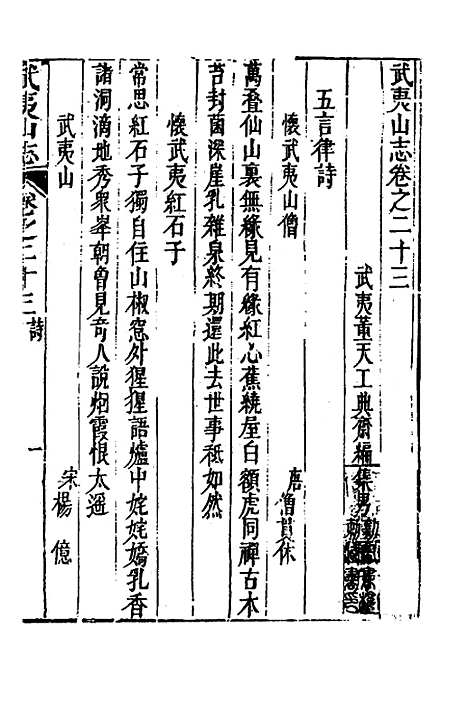 武夷山志卷之二十三
武夷董天工典齋編集男
五言律詩
懷武夷山僧
唐僧貫休
萬疊仙山裏無緣見有緣紅心蕉繞屋白額虎同禪古木
苔封菌深崖乳雜泉終期還此去世事祗如然
懷武夷紅石子
常思紅石子獨自住山椒窓外猩猩語爐中姹姹嬌乳香
諸洞滴地秀衆峯朝曾見奇人說烟霞恨太遥
武夷山
宋楊億
武夷山志
卷之二十三
詩
一